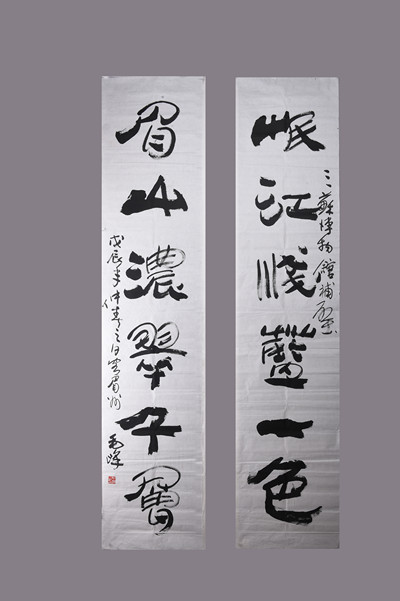 岷江淺藍一色
三蘇博物館補壁
眉山濃翠千層
戊辰年仲春之日 眉州